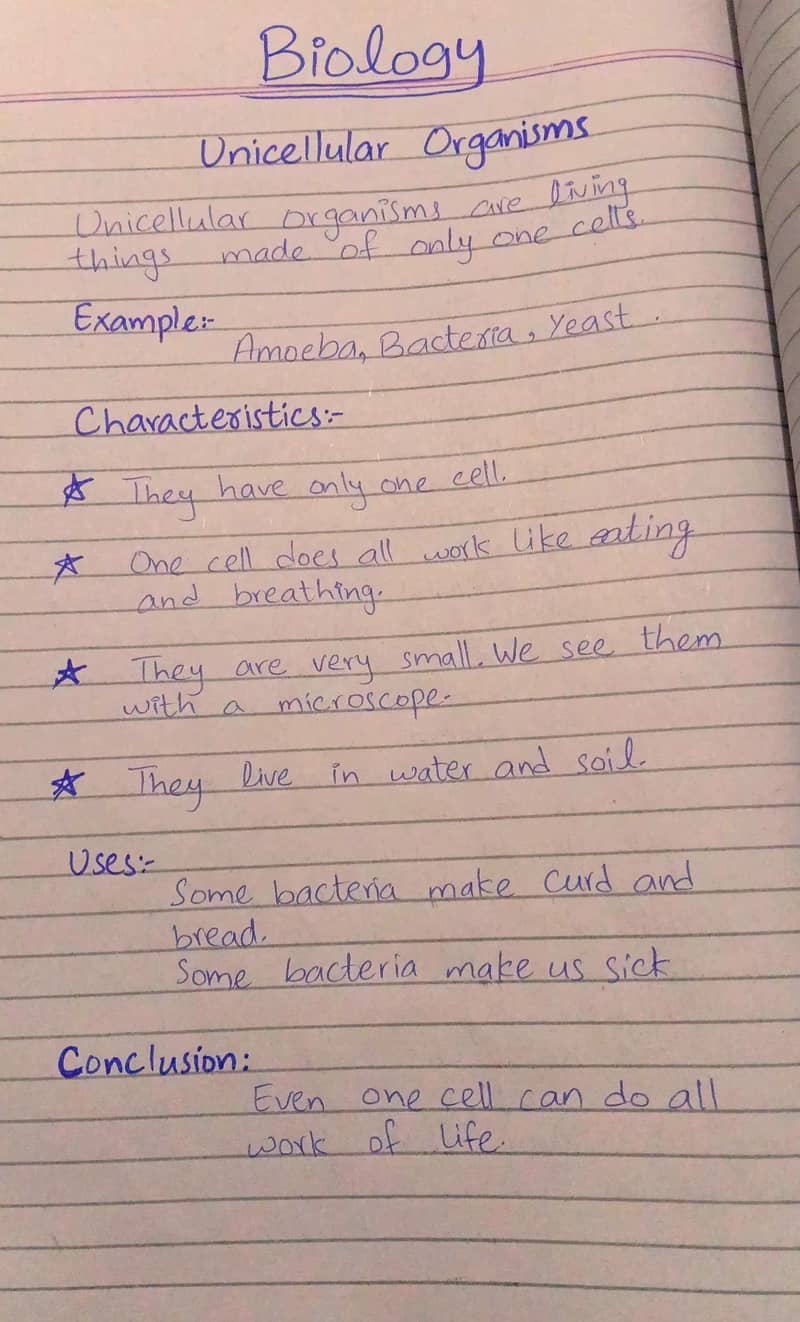 Biology
Unicellular Organisms
Unicellular organisms are living
things made of only one cells.
Example:-
Amoeba, Bacteria, Yeast.
Characteristics:-
☆ They have only one cell.
☆ One cell does all work like eating
and breathing.
☆ They are very small. We see them
with a microscope.
☆ They live in water and soil.
Uses:-
Some bacteria make curd and
bread.
Some bacteria make us sick
Conclusion:
Even one cell can do all
work of life.